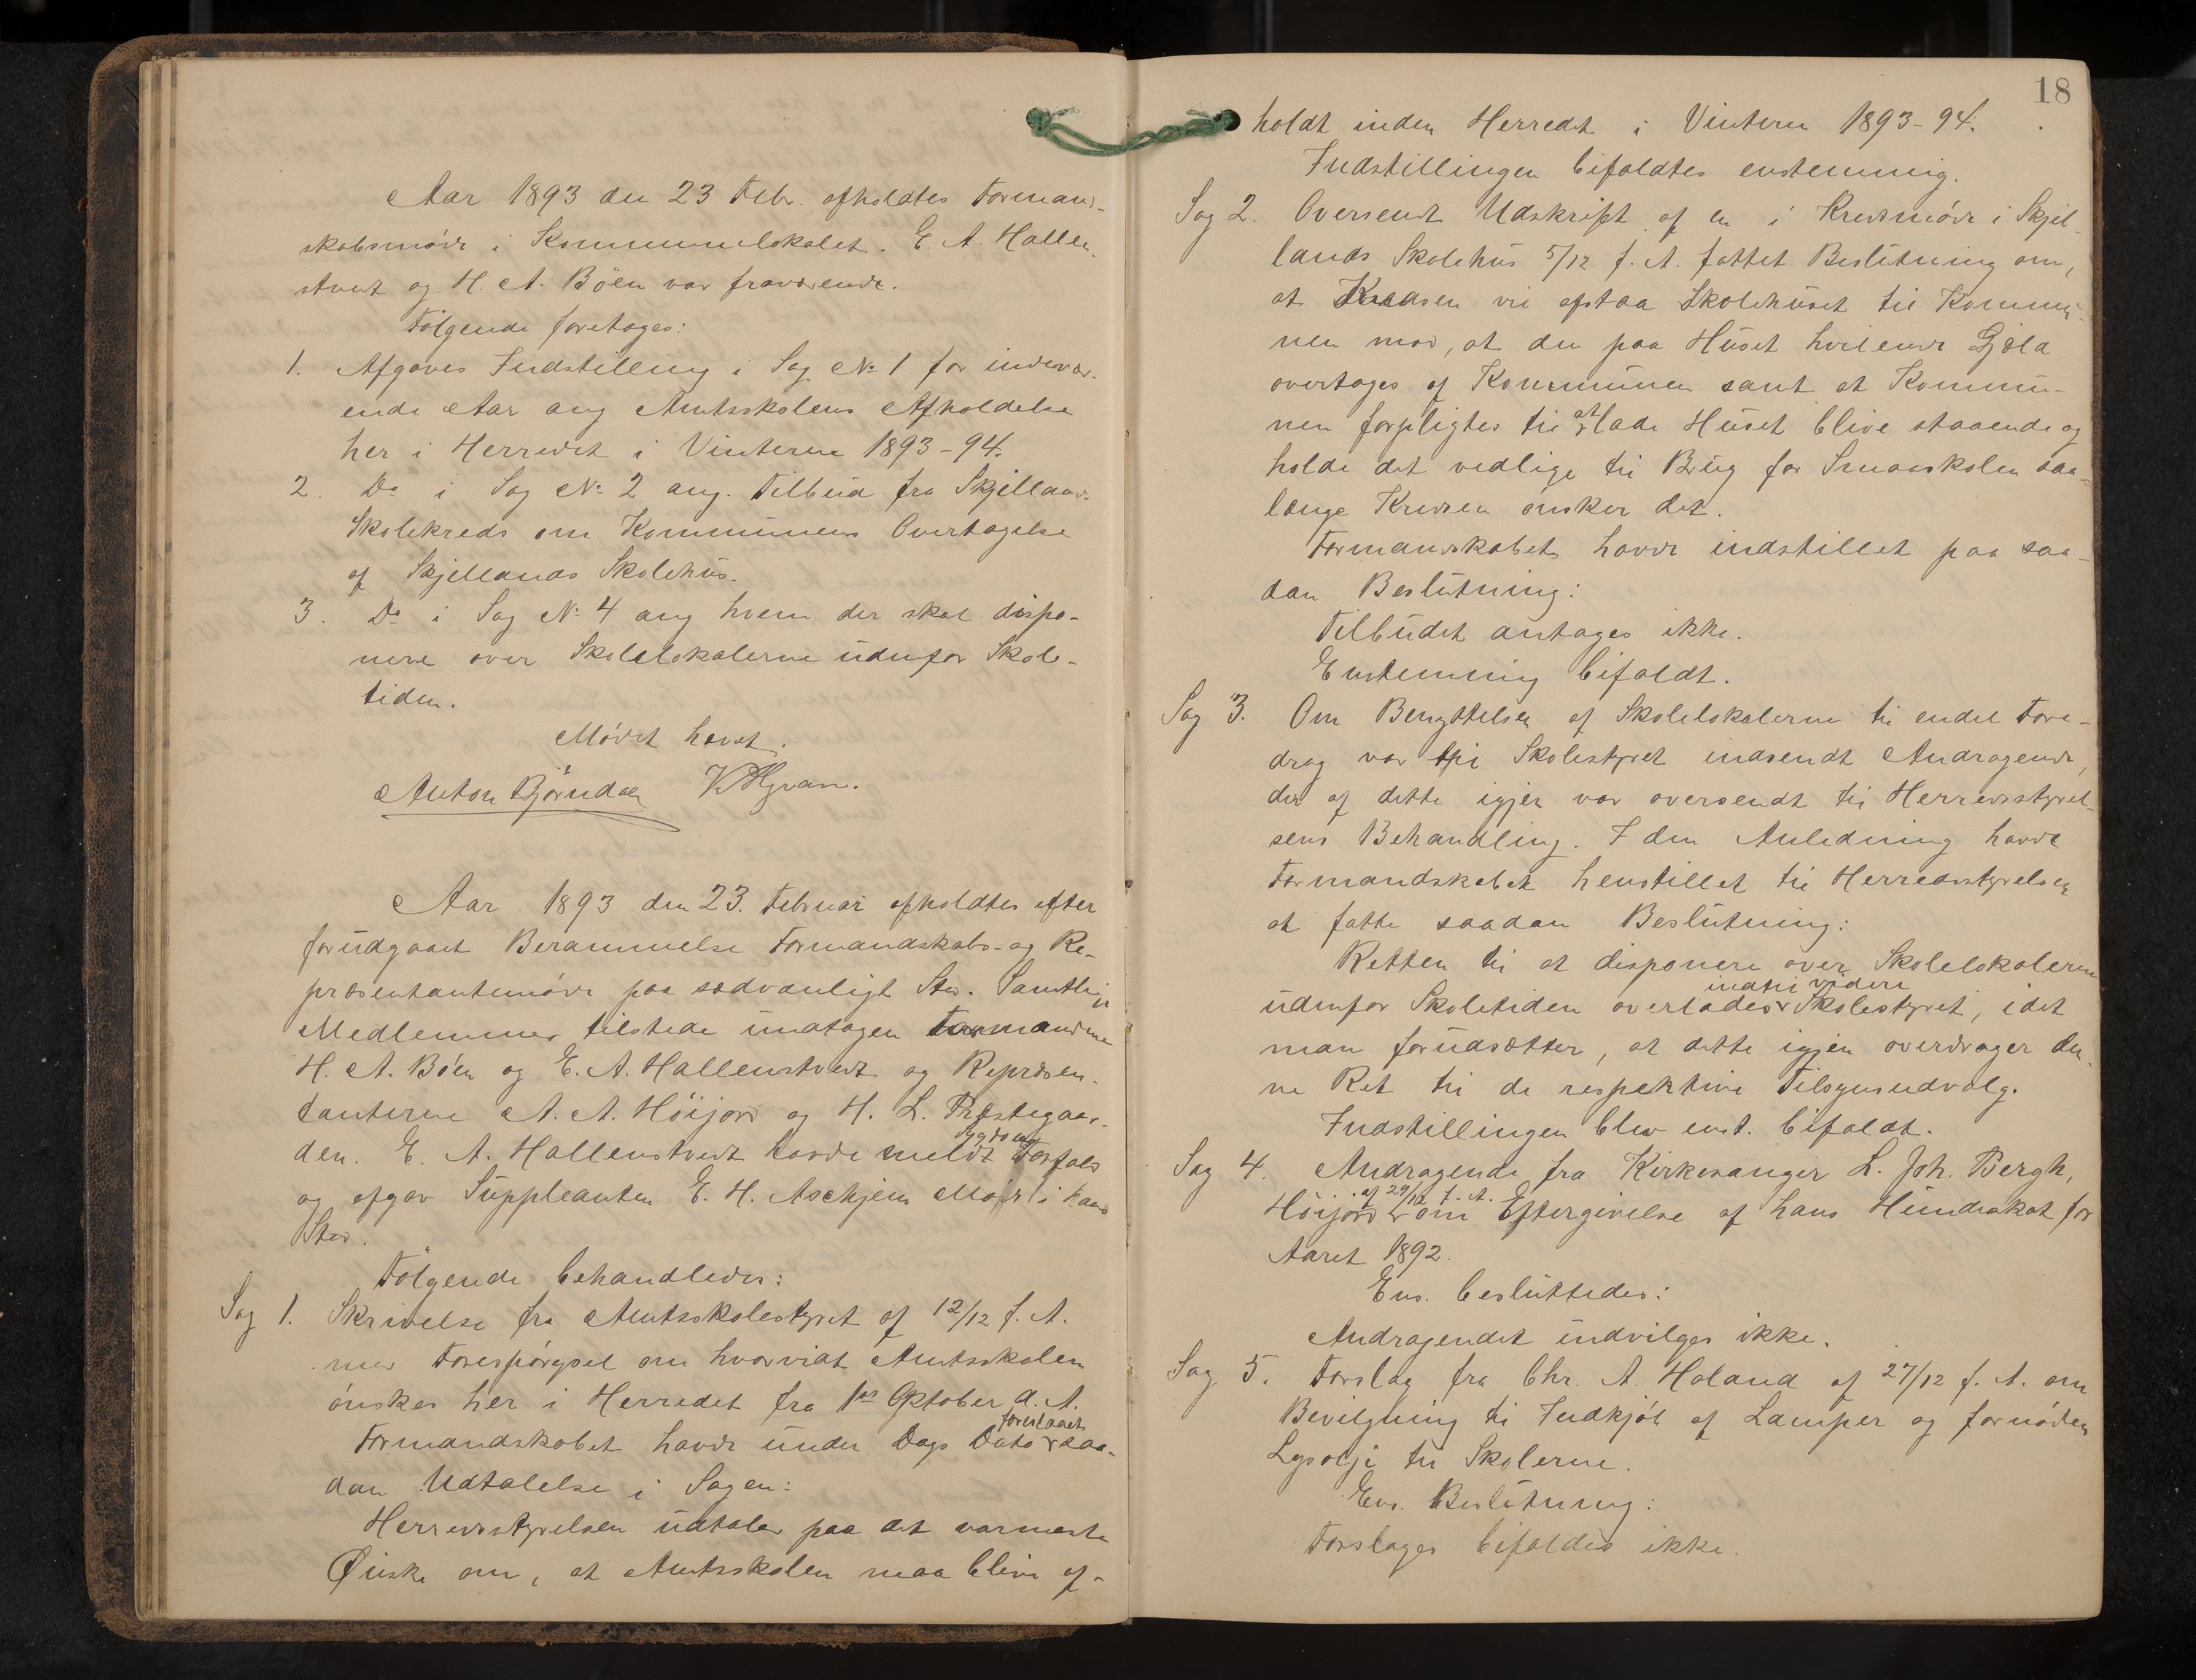 Aar 1893 den 23 Febr. afholdtes Formand-
skabsmöde i Kommunelokalet. E. A. Hallen-
stvedt og H. A. Böen var fraværende.
Følgende foretoges:
1. Afgaves Indstilling i Sag No 1 for indevær-
ende Aar ang Amtsskolens Afholdelse
her i Herredet i Vinteren 1893-94.
2. Do i Sag No 2 ang. Tilbud fra Skjelland
Skolekreds om Kommunens Overtagelse
af Skjellands Skolehus.
3. Do i Sag No 4 ang hvem der skal dispo-
nere over Skolelokalerne udenfor Skole-
tiden.
Mödet hævet.
Anton Björndal
Aar 1893 den 23. Februar afholdtes efter
forudgaaet Berammelse Formandskabs- og Re-
præsentantmöde paa sædvanligt Sted. Samtlige
Medlemmer tilstede undtagen Formændene
H. A. Böen og E. A. Hallenstvedt og Repræsen-
tanterne A. A. Höijord og H. L. Præstegaar-
den. E. A. Hallenstvedt havde meldt Sygdoms Forfald
og afgav Suppleanten E. H. Askjem Möde i hans
Sted.
Følgende behandledes:
Sag 1. Skrivelse fra Amtsskolestyret af 12/12 f. A.
med Forespörgsel om hvorvidt Amtsskolen
önskes her i Herredet fra 1ste Oktober d. A.
Formandskabet havde under Dags Dato foreslaaet saa-
dan Udtalelse i Sagen:
Herredsstyrelsen udtaler paa det varmeste
Önske om, at Amtsskolen maa blive af-
18
holdt inden Herredet i Vinteren 1893-94.
Indstillingen bifaldtes enstemmig.
Sag 2. Oversendt Udskrift af en i Kredsmöde i Skjel-
lands Skolehus 5/12 f. A. fattet Beslutning om,
at Kredsen vil afstaa Skolehuset til Kommu-
nen mod, at den paa Huset hvilende Gjæld
overtages af Kommunen samt at Kommu-
nen forpligtes til at lade Huset blive staaende og
holde det vedlige til Brug for Smaaskolen saa-
længe Kredsen önsker det.
Formandskabet havde indstillet paa saa-
dan Beslutning:
Tilbudet antages ikke.
Enstemmig bifaldt.
Sag 3. Om Benyttelsen af Skolelokalerne til endel Fore-
drag var til Skolestyret indsendt Andragende,
der af dette igjen var oversendt til Herredsstyrel-
sens Behandling. I den Anledning havde
Formandskabet henstillet til Herredsstyrelsen
at fatte saadan Beslutning:
Retten til at disponere over Skolelokalerne
udenfor Skoletiden overlades indtil videre Skolestyret, idet
man forudsætter, at dette igjen overdrager den-
ne Ret til de respektive Tilsynsudvalg.
Indstillingen blev enst. bifaldt.
Sag 4. Andragende fra Kirkesanger L. Joh. Bergh,
Höijord af 29/12 f. A. om Eftergivelse af hans Hundeskat for
Aaret 1892.
Ens. besluttedes:
Andragendet indvilges ikke.
Sag 5. Forslag fra Chr. A. Holand af 27/12 f. A. om
Bevilgning til Indkjöb af Lamper og fornöden
Lysolje til Skolerne.
Ens. Beslutning:
Forslaget bifaldes ikke.